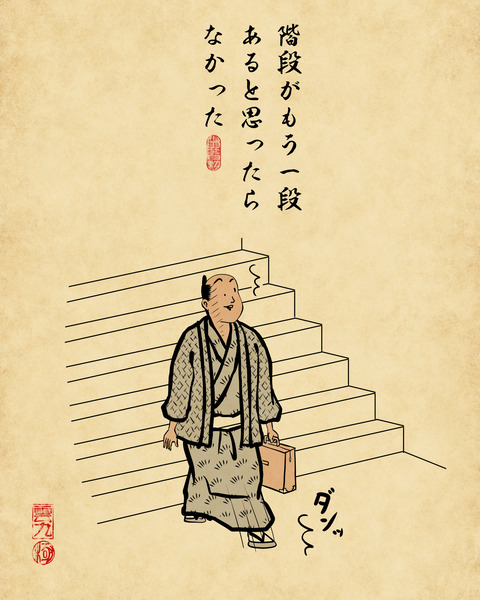 階段がもう一段
あると思ったら
なかった
ダンッ